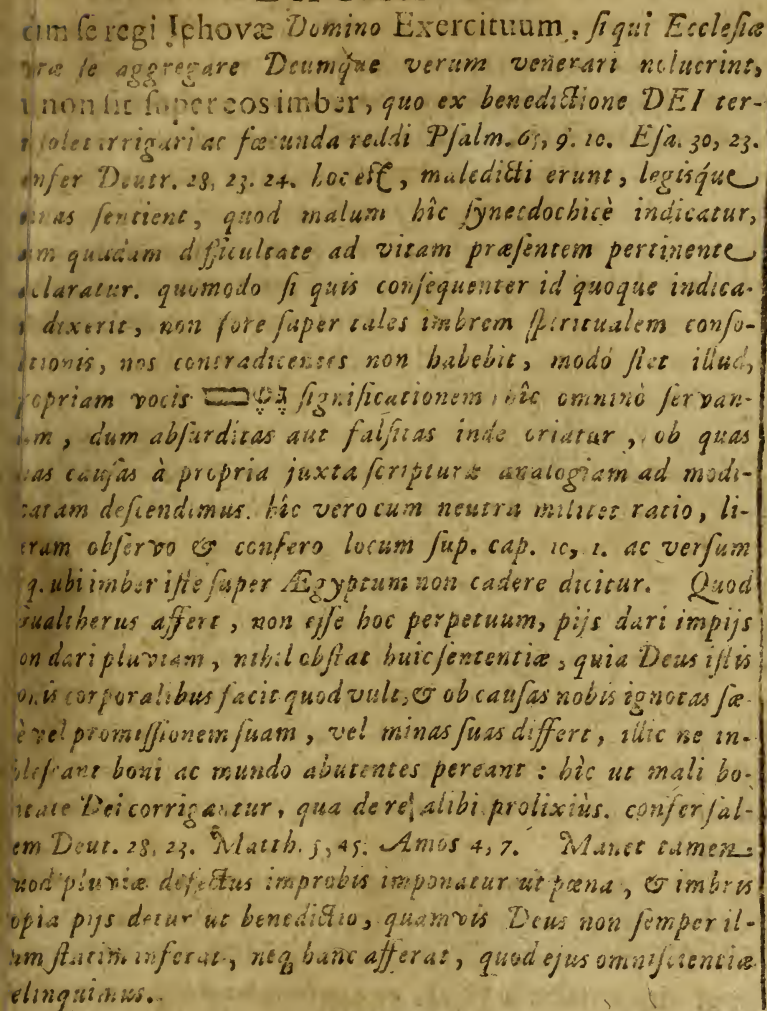 se regi Jehovæ Domino Exercituum, si qui Ecclesiæ
se aggregare Deumque verum venerari noluerint,
non sit super eos imber, quo ex benedictione DEI ter-
solet irrigari ac fœcunda reddi Psalm. 65, 9. 10. Esa. 30, 23.
Deutr. 28, 23. 24. hoc est, maledicti erunt, legisque
sentient, quod malum hîc synecdochicè indicatur,
quadam difficultate ad vitam præsentem pertinente
claratur. quomodo si quis consequenter id quoque indica-
dixerit, non fore super tales imbrem spiritualem conso-
nos contradicentes non habebit, modò stet illud,
propriam vocis גשם significationem hîc omninò servan-
dum absurditas aut falsitas inde oriatur, ob quas
causas à propria juxta scripturæ analogiam ad modi-
descendimus. hîc vero cum neutra militet ratio, li-
observo & confero locum sup. cap. 10, 1. ac versum
q. ubi imber iste super Ægyptum non cadere dicitur. Quod
affert, non esse hoc perpetuum, pijs dari impijs
dari pluviam, nihil obstat huic sententiæ, quia Deus istis
corporalibus facit quod vult, & ob causas nobis ignotas sæ-
vel promissionem suam, vel minas suas differt, illic ne in-
boni ac mundo abutentes pereant: hîc ut mali bo-
Dei corrigantur, qua de re alibi prolixiùs. confer sal-
em Deut. 28, 23. Matth. 5, 45. Amos 4, 7. Manet tamen
quod pluviæ defectus improbis imponatur ut pœna, & imbris
copia pijs detur ut benedictio, quamvis Deus non semper il-
statim inferat, neq; hanc afferat, quod ejus omniscientiæ
relinquimus.